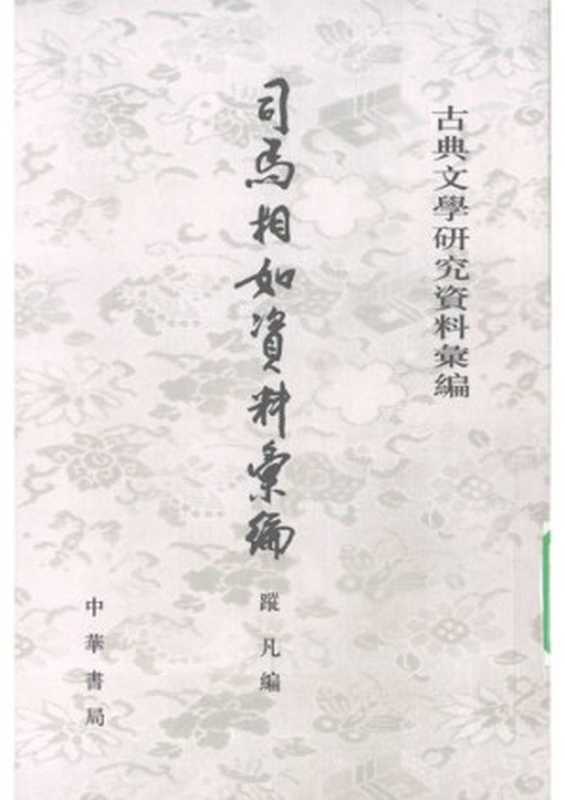 古典文學研究資料彙編
司馬相如資料彙編
蹤凡編
中華書局